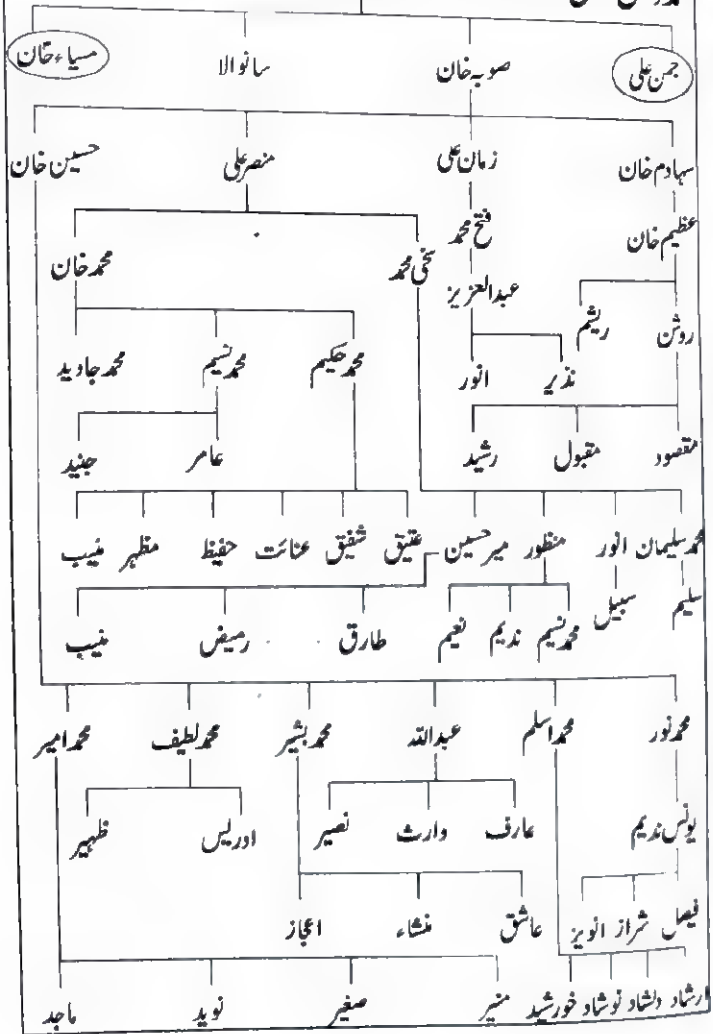 جمن علی صوبہ خان سانوالا میاء خان
سہادم خان زمان علی منصر علی حسین خان
عظیم خان فتح محمد
سخی محمد محمد خان
عبدالعزیز
روشن ریشم
نذیر انور محمد حکیم محمد نسیم محمد جاوید
مقصود مقبول رشید عامر جنید
محمد سلیمان انور منظور میر حسین عتیق شفیق عنائت حفیظ مظہر منیب
سلیم سبیل محمد نسیم ندیم نعیم طارق رمیض منیب
محمد نور محمد اسلم عبداللہ محمد بشیر محمد لطیف محمد امیر
یونس ندیم عارف وارث نصیر ادریس ظہیر
فیصل شراز انویز عاشق منشاء اعجاز
ارشاد دلشاد نوشاد خورشید منیر صغیر نوید ماجد